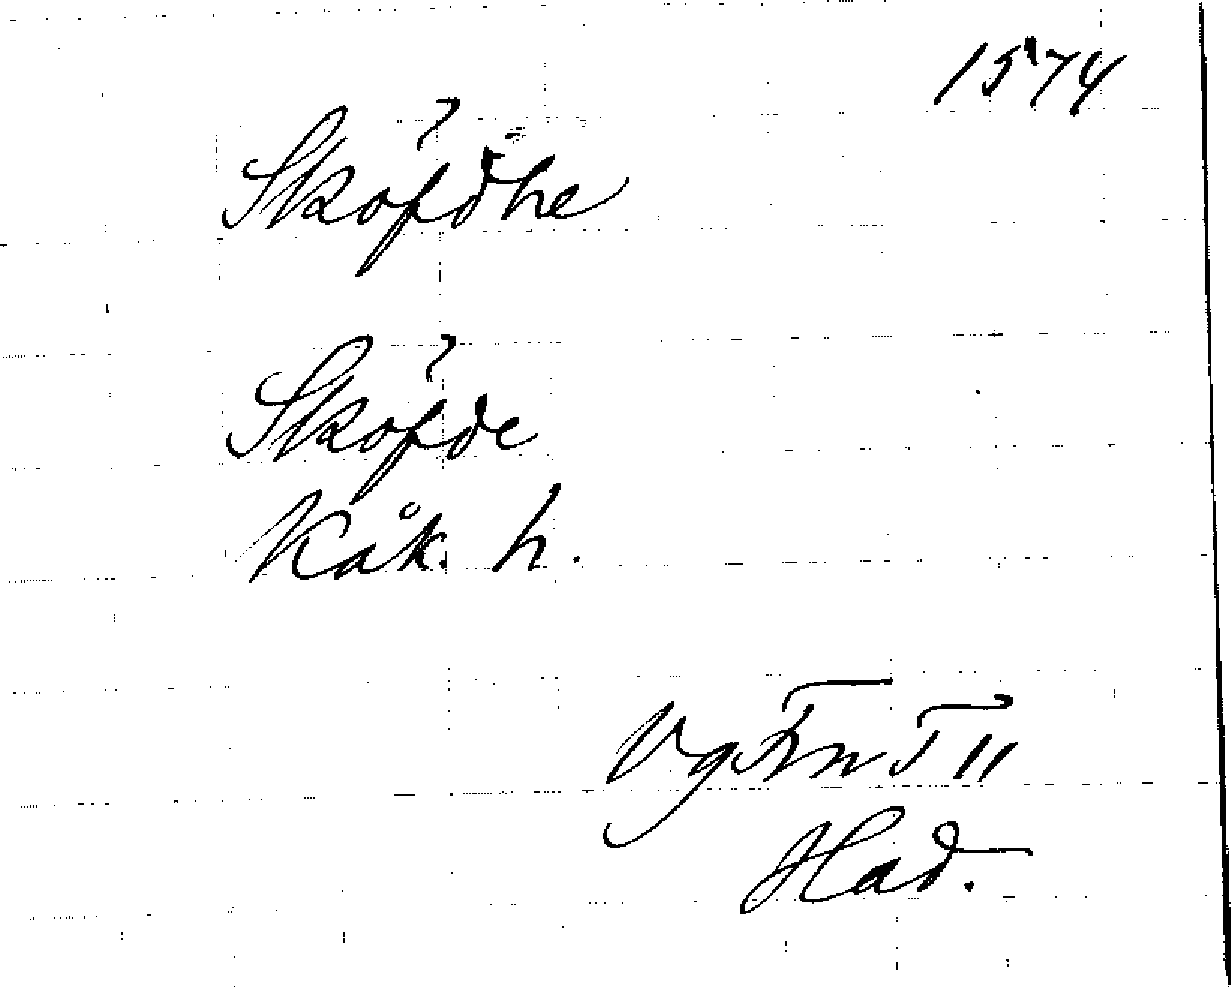 1574
Sköfdhe
Sköfde
Kåk. h.
Vg Fn T 11
Had.